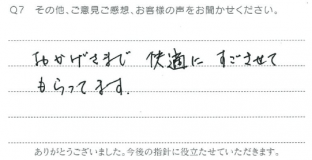 Q7 その他、ご意見ご感想、お客様の声をお聞かせください。
おかげさまで 快適に すごさせて
もらってます.
ありがとうございました。今後の指針に役立たせていただきます。